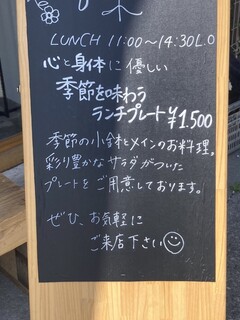 LUNCH 11:00〜14:30L.O
心と身体に優しい
季節を味わう
ランチプレート¥1,500
季節の小鉢とメインのお料理。
彩り豊かなサラダがついた
プレートをご用意しております。
ぜひ、お気軽に
ご来店下さい